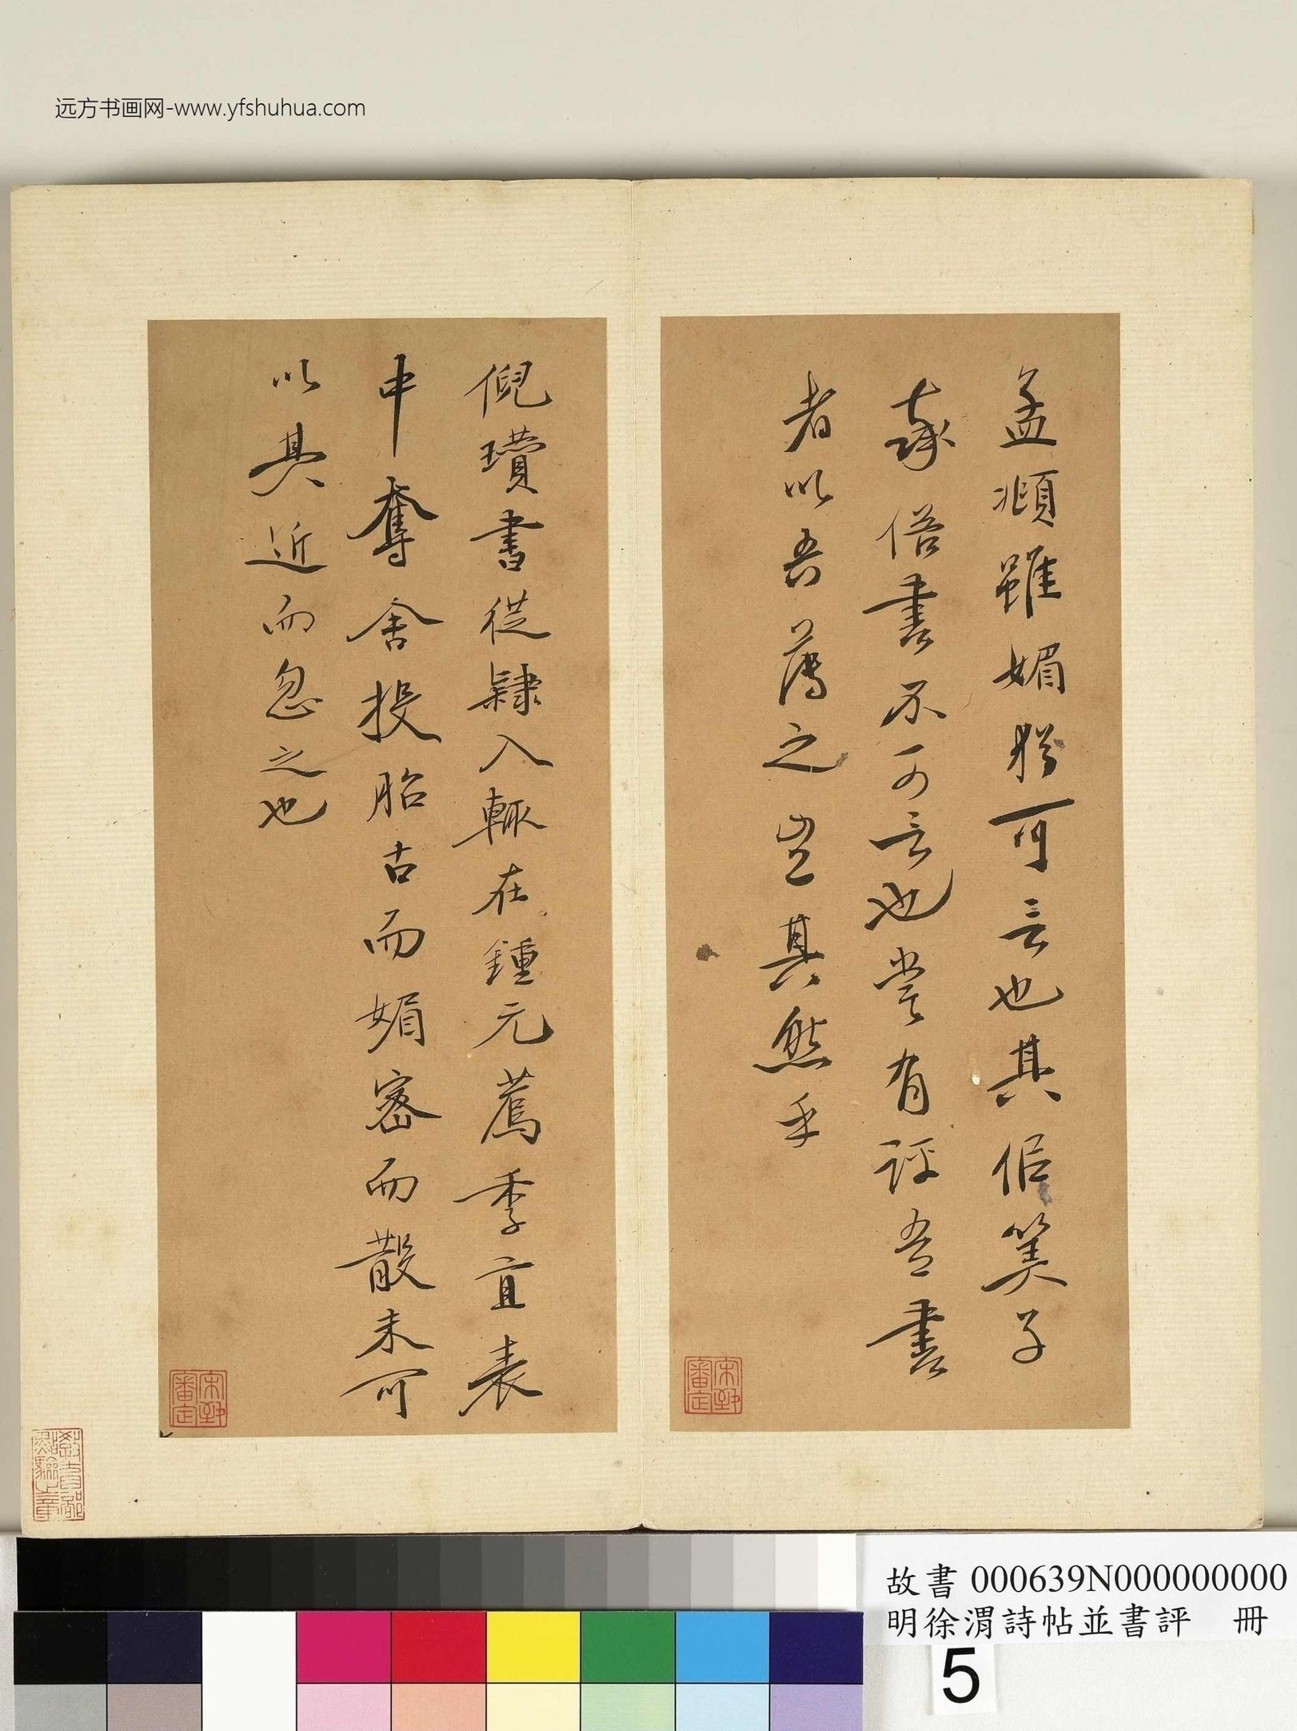 远方书画网-www.yfshuhua.com
孟頫雖媚猶可言也其侣笑子
率俗書不可言也嘗有評吾書
者以吾薄之豈其然乎
倪瓚書從隸入輒在鍾元薦季直表
中奪舍投胎古而媚密而散未可
以其近而忽之也
故書 000639N000000000
明徐渭詩帖並書評 冊
5